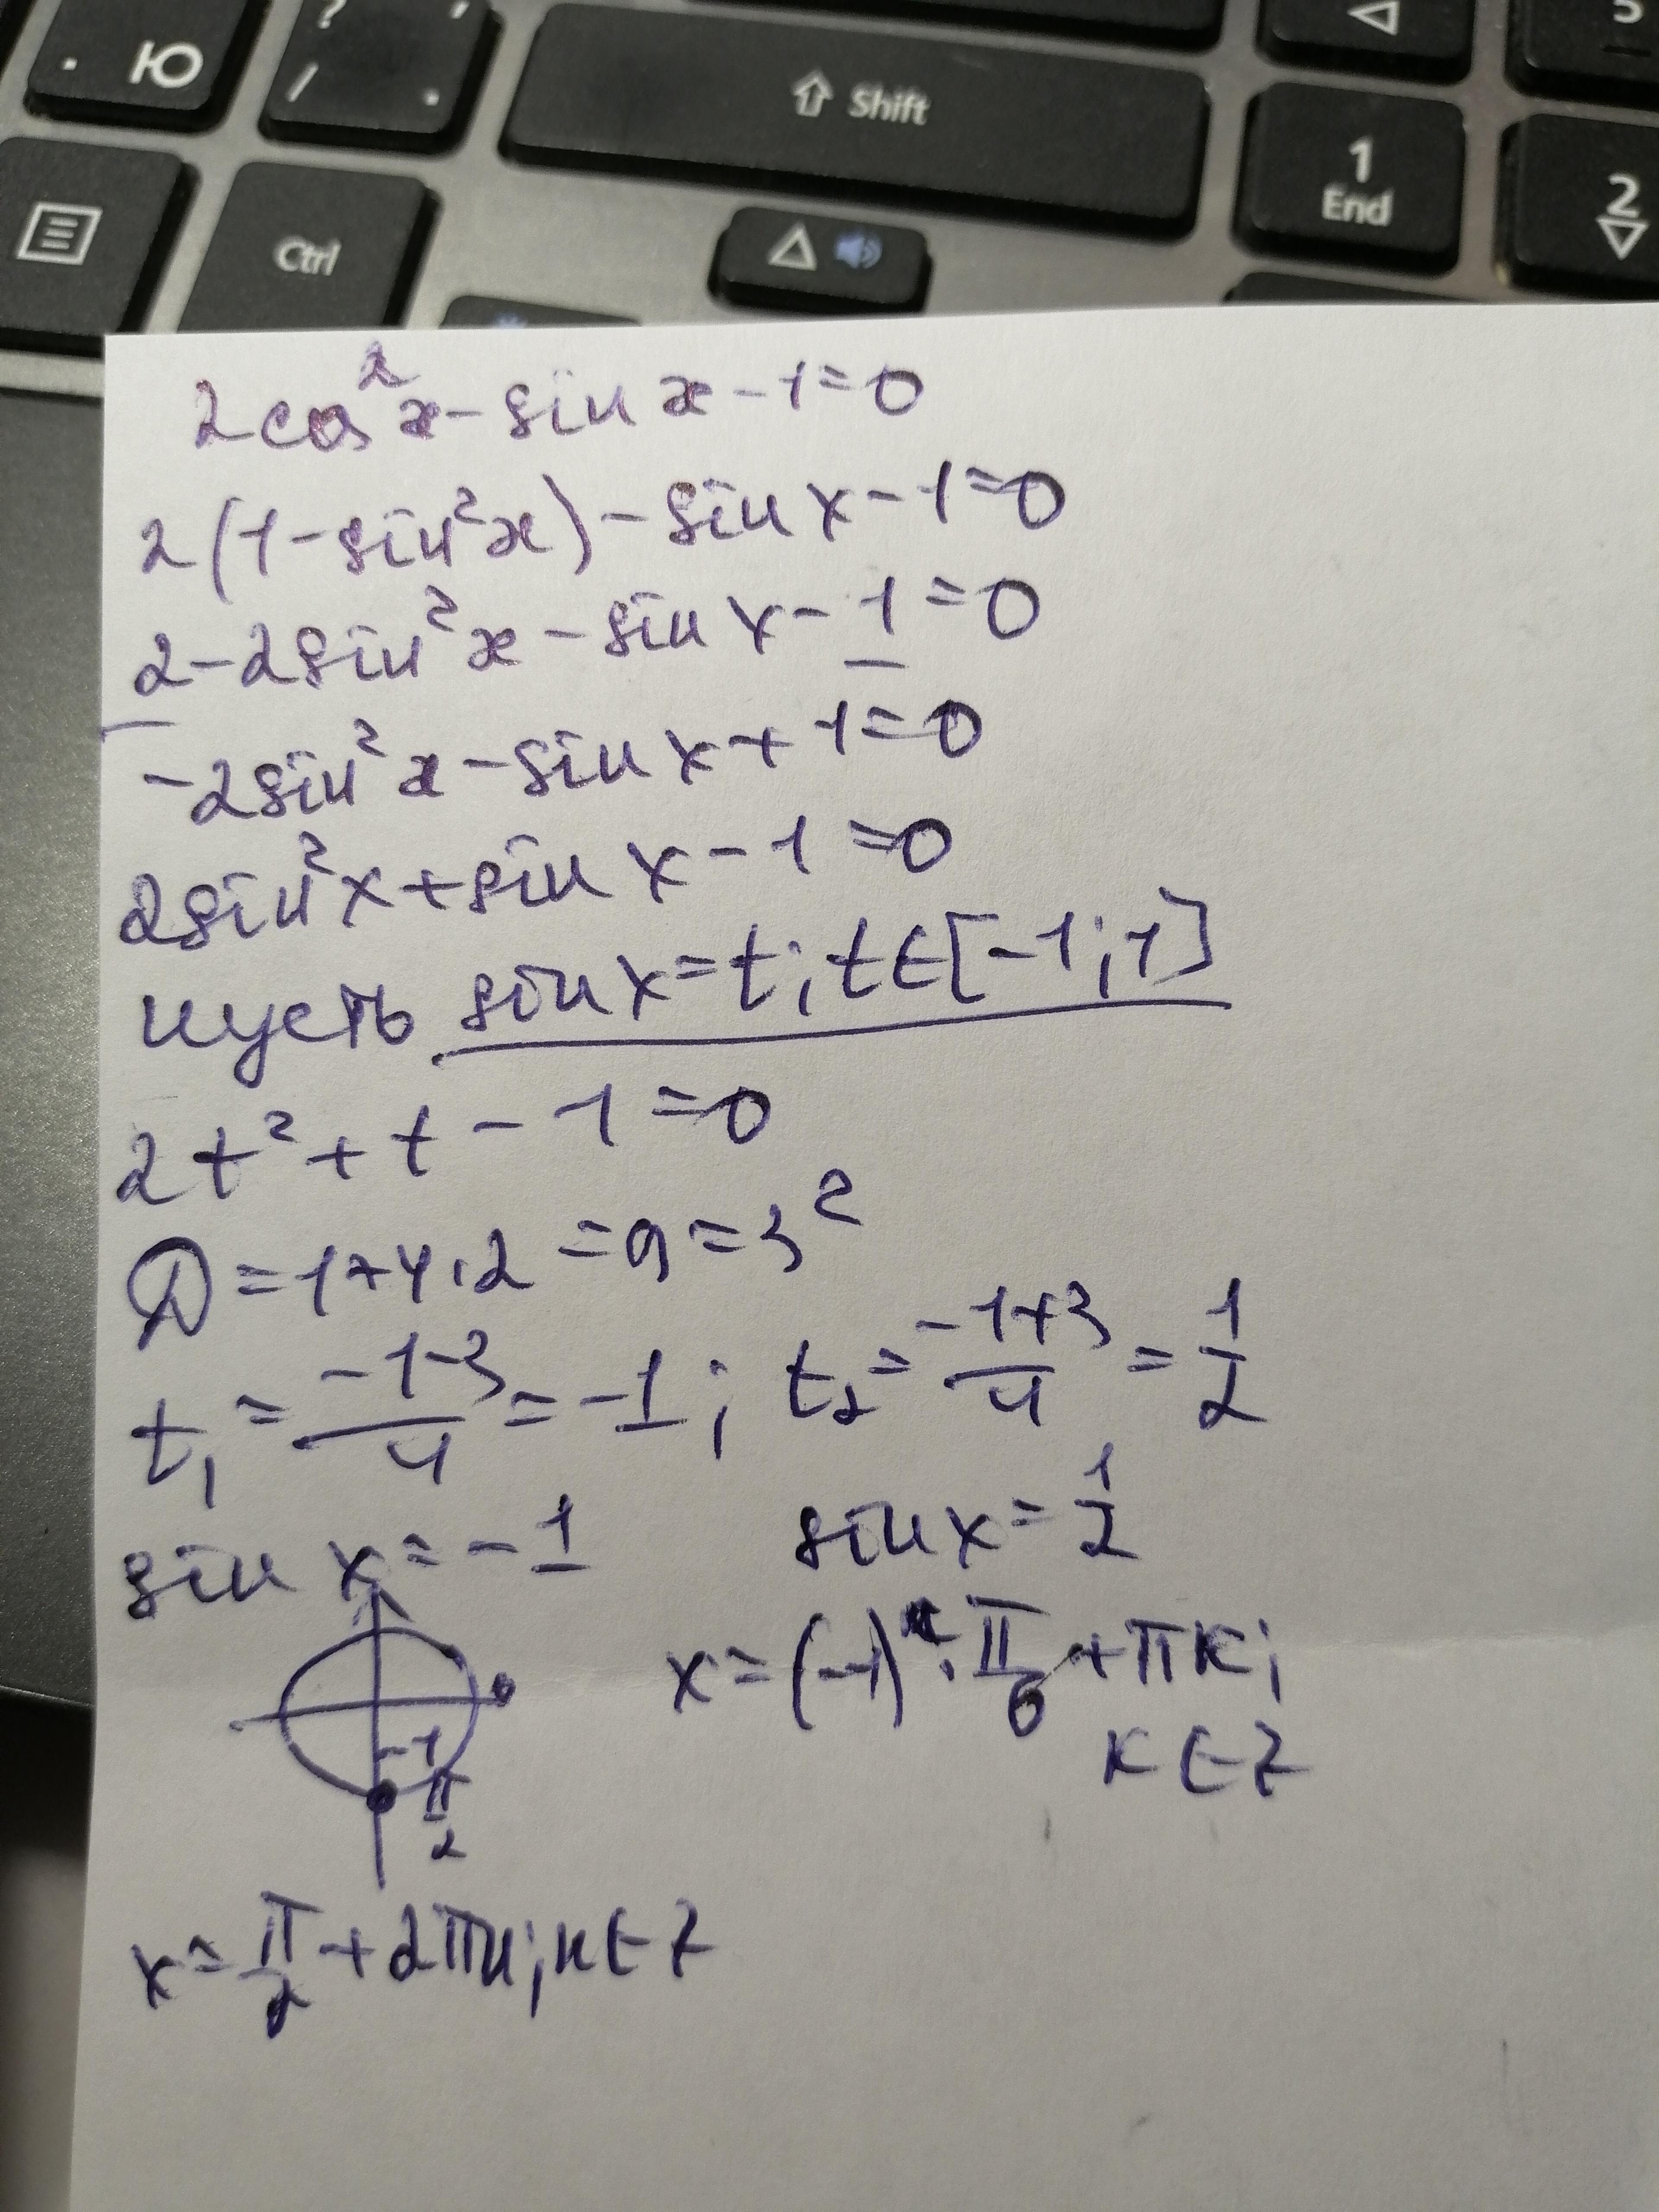 . Ю
? ,
/ .
⇧ Shift
1
End
2
5
Ctrl
2cos²x - sin x - 1 = 0
2(1 - sin²x) - sin x - 1 = 0
2 - 2sin²x - sin x - 1 = 0
-2sin²x - sin x + 1 = 0
2sin²x + sin x - 1 = 0
пусть sin x = t; t∈[-1;1]
2t² + t - 1 = 0
D = 1+4·2 = 9 = 3²
t₁ = (-1-3)/4 = -1; t₂ = (-1+3)/4 = 1/2
sin x = -1 sin x = 1/2
x = (-1)ᵏ · π/6 + πk;
k ∈ Z
0
-1
π/2
x = π/2 + 2πn; n ∈ Z